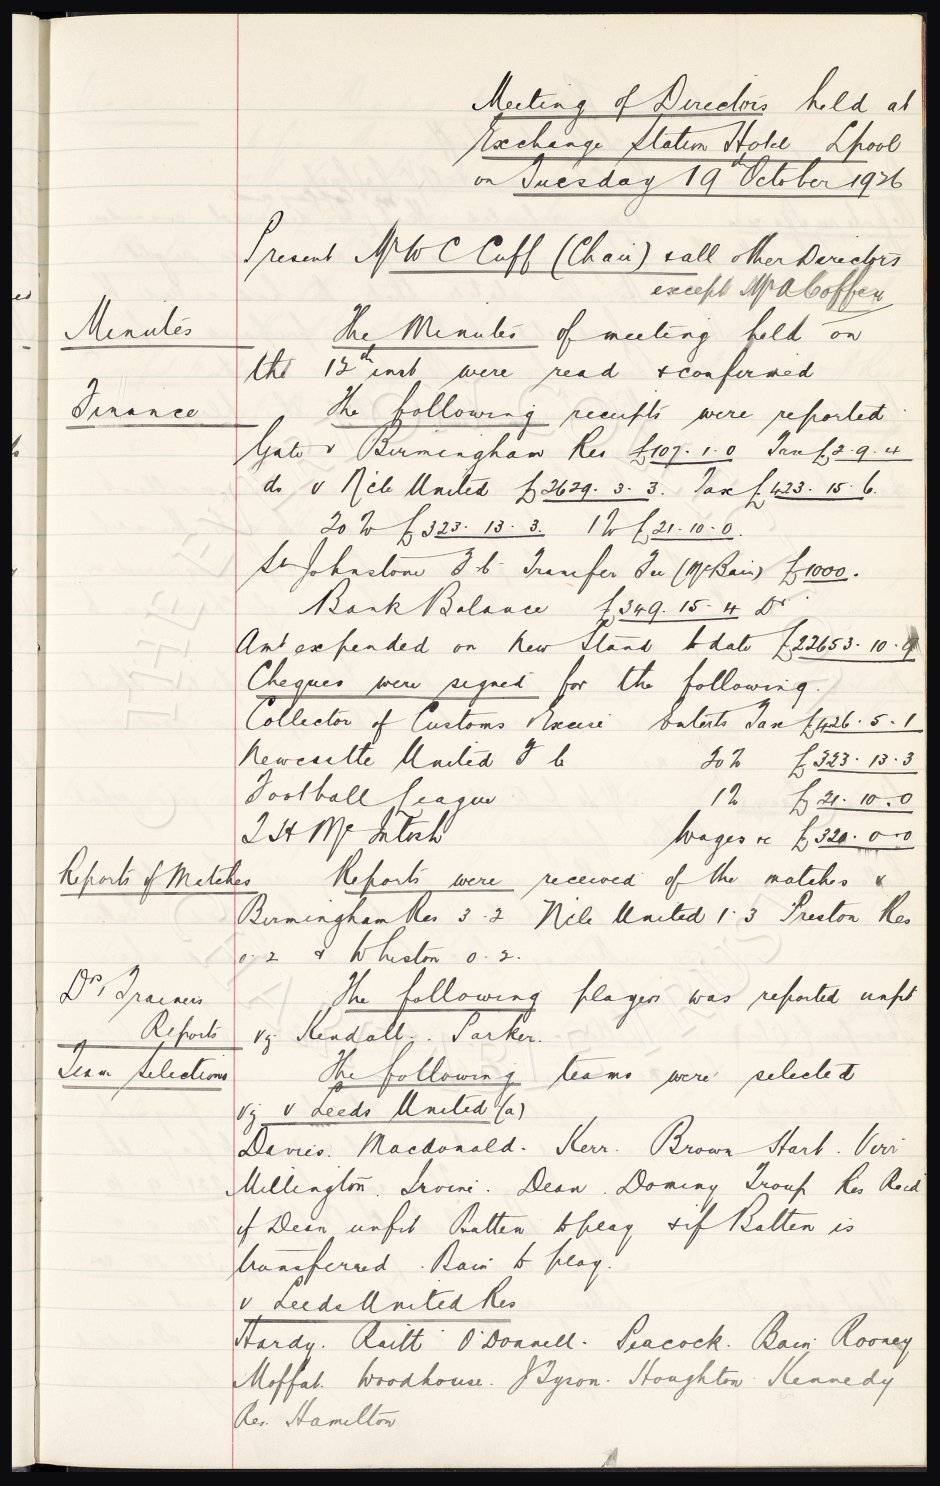 Meeting of Directors held at
Exchange Station Hotel Lpool
on Tuesday 19th October 1926
Present Mr W C Cuff (Chair) & all other Directors
except Mr A Coffey
Minutes The Minutes of meeting held on
the 12th inst were read & confirmed
Finance The following receipts were reported
Gate v Birmingham Res £107. 1. 0 Tax £2. 9. 4
do v N'cle United £2629. 3. 3. Tax £423. 15. 6.
20% £323. 13. 3. 1% £21. 10. 0.
St Johnstone F.C. Transfer Fee (McBain) £1000.
Bank Balance £349. 15. 4 Dr
Amt expended on New Stand to date £22653. 10. 9
Cheques were signed for the following.
Collector of Customs Excise Enterts Tax £426. 5. 1
Newcastle United F C 20% £323. 13. 3
Football League 1% £21. 10. 0
T H McIntosh Wages &c £320. 0. 0
Reports of Matches Reports were received of the matches v
Birmingham Res 3-2 N'cle United 1-3 Preston Res
0-2 & Whiston 0-2.
Drs, Trainers The following players was reported unfit
Reports vz Kendall. Parker.
Team Selections The following teams were selected
vz v Leeds United (a)
Davies. Macdonald. Kerr. Brown Hart. Virr
Millington. Irvine. Dean. Dominy Troup Res Reid
if Dean unfit Batten to play & if Batten is
transferred. Bain to play.
v Leeds United Res
Hardy. Raitt O'Donnell. Peacock. Bain Rooney
Moffat. Woodhouse. Byson. Houghton Kennedy
Res. Hamilton